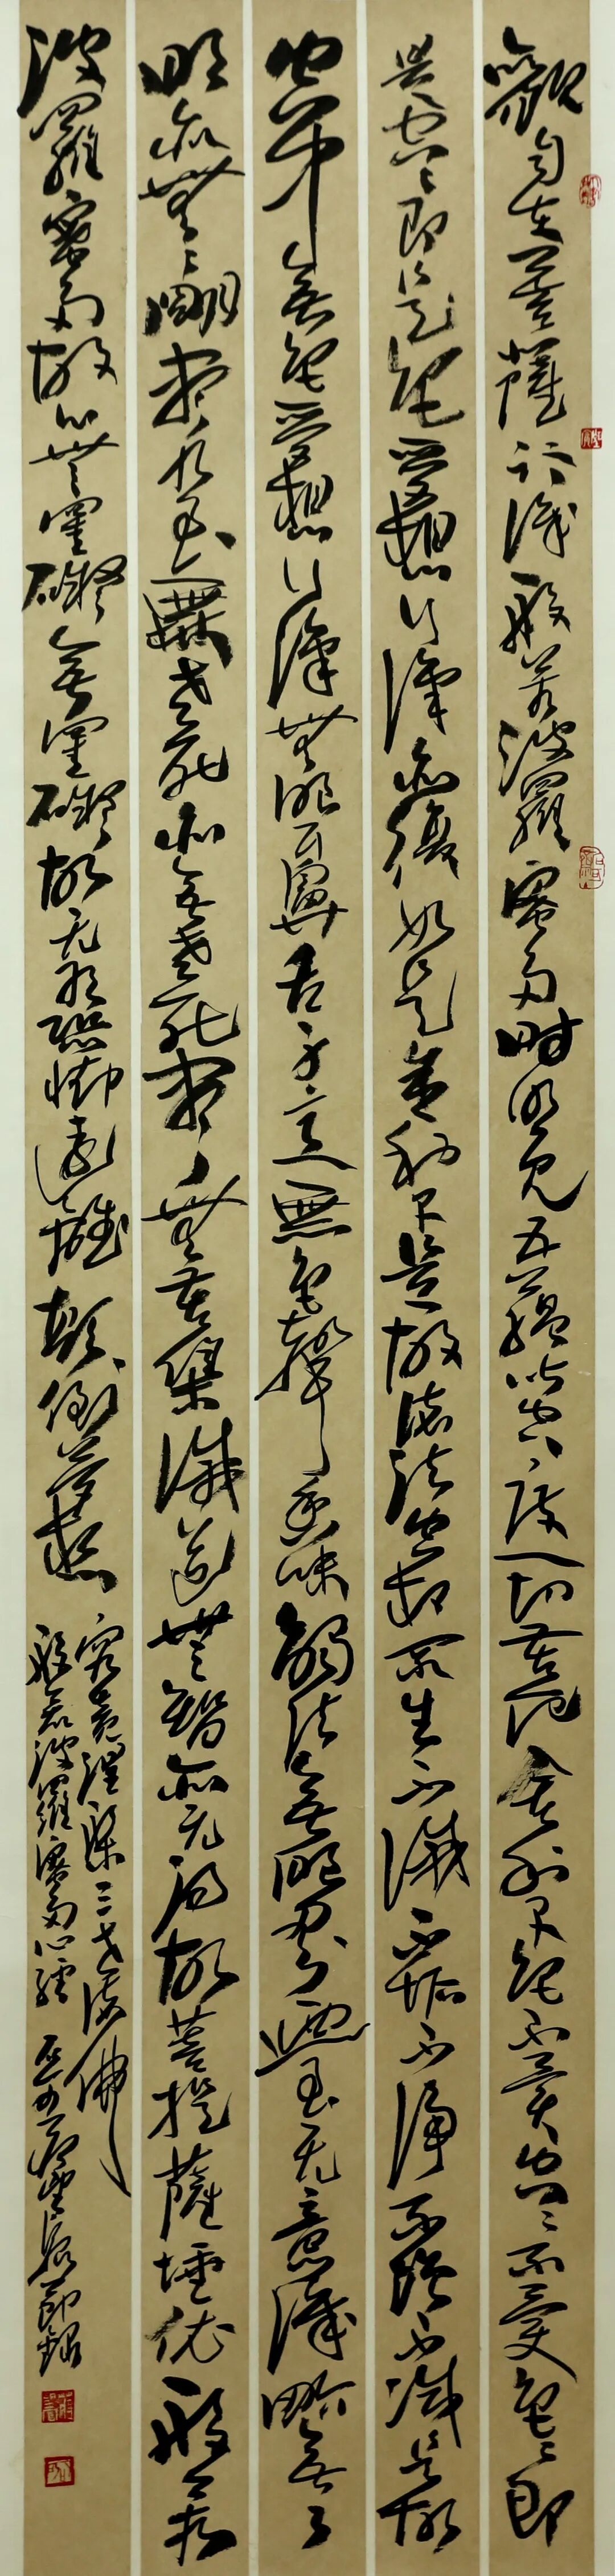 觀自在菩薩行深般若波羅蜜多時照見五蘊皆空度一切苦厄舍利子色不異空空不異色色即
是空空即是色受想行識亦復如是舍利子是故諸法空相不生不滅不垢不淨不增不減是故
空中無色受想行識無眼耳鼻舌身意無色聲香味觸法無眼界乃至无意識界無無
明亦無無明盡乃至無老死亦無老死盡無苦集滅道無智亦无得故菩提薩埵依般若
波羅蜜多故心無罣礙無罣礙故无有恐怖遠離顛倒夢想
究竟涅槃三世諸佛
般若波羅蜜多心經 節錄